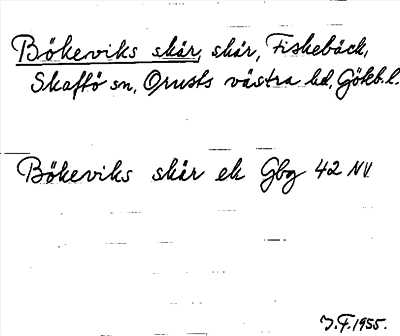 Bökeviks skär, skär, Fiskebäck,
Skaftö sn, Orusts västra hd, Götéb. l.
Bökeviks skär ek Gbg 42 NV.
J.F. 1955.